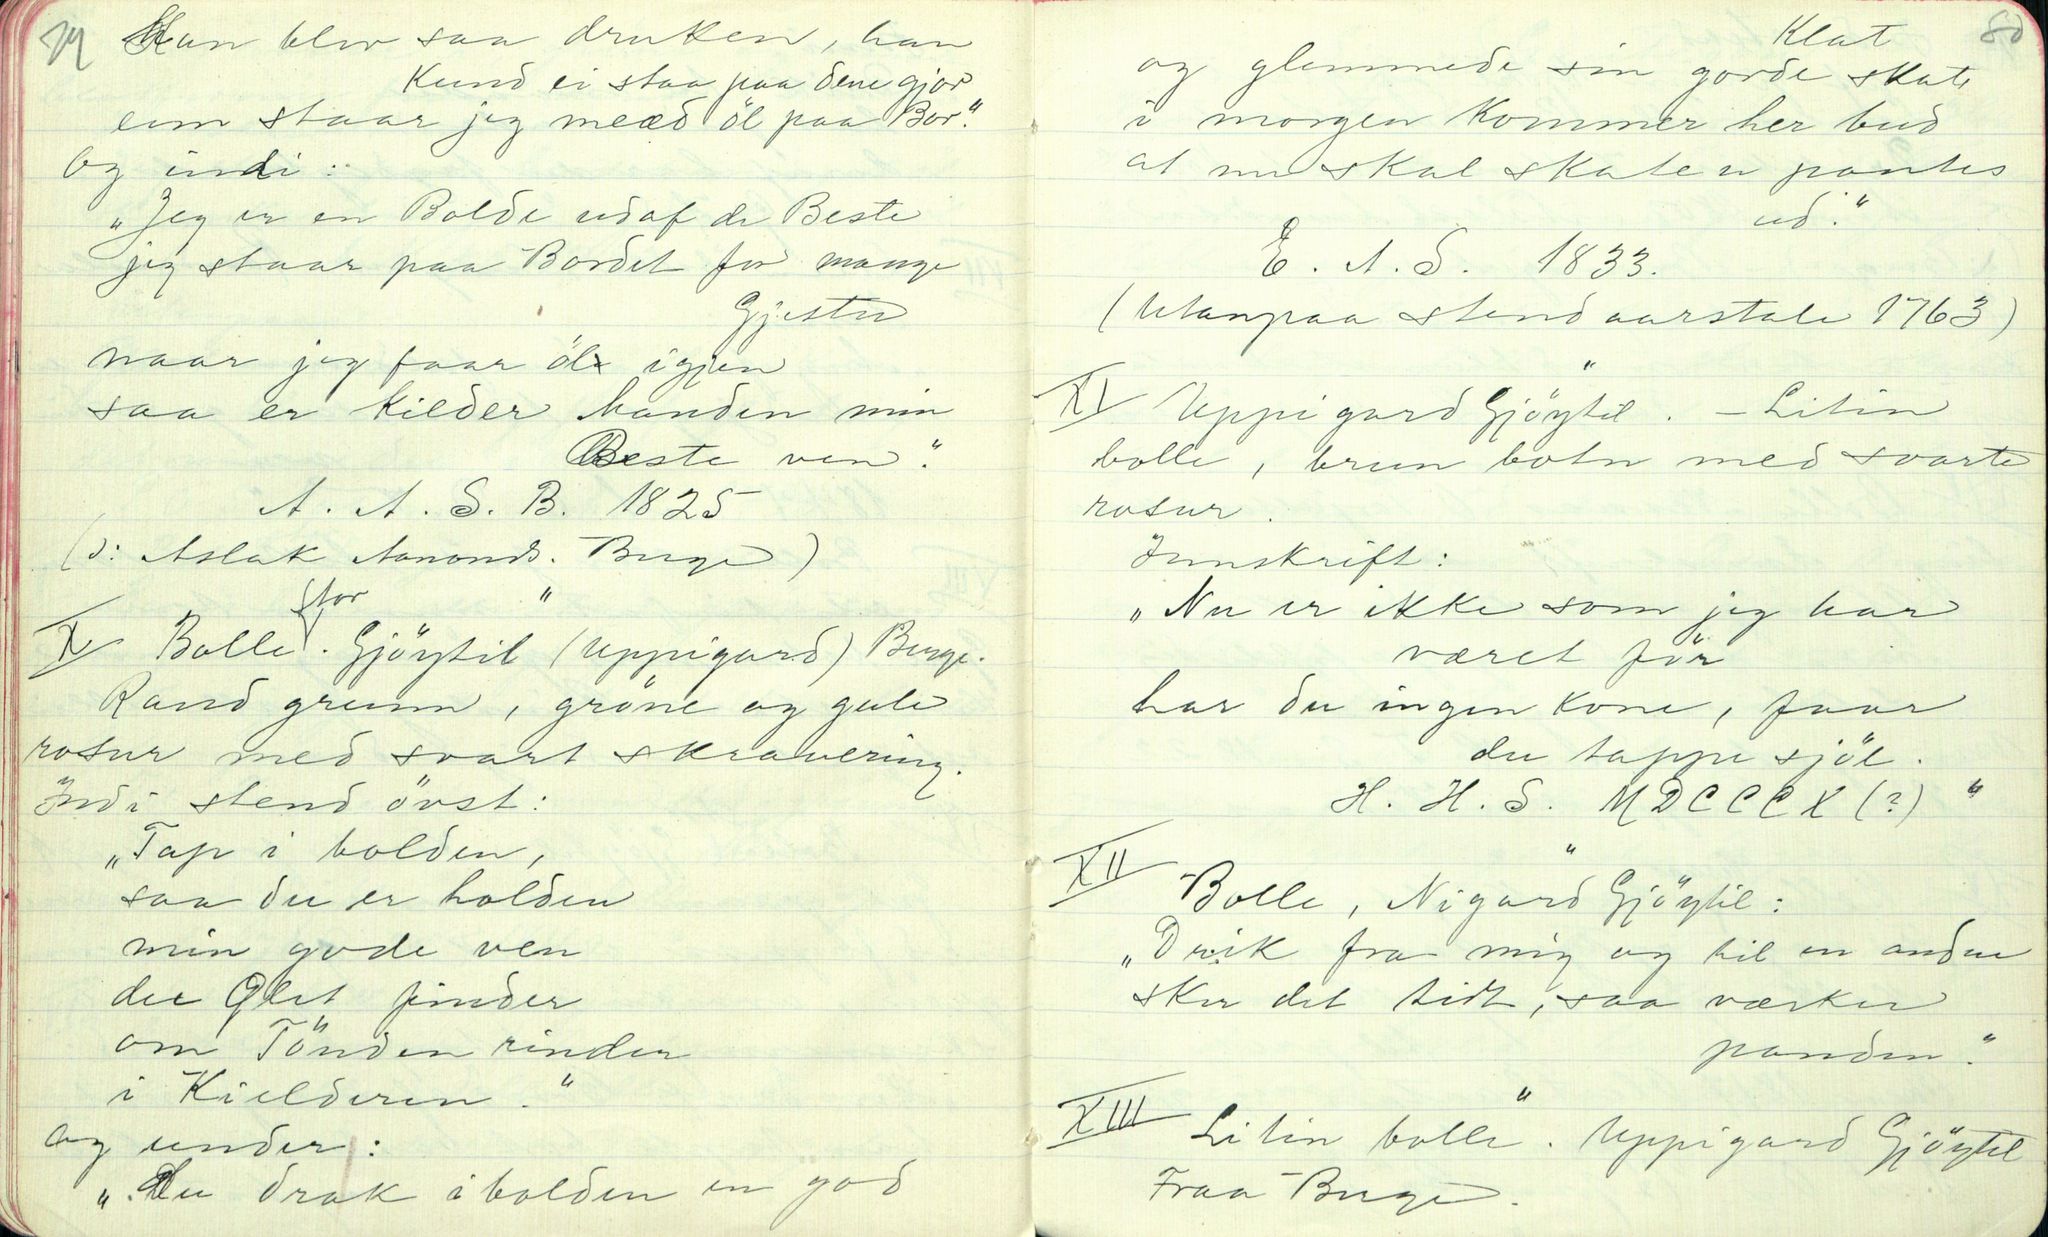 79
Han blev saa druken, han
kund ei staa paa dene gjor
em staar jeg meæd öl paa Bor."
Og indi:
"Jeg er en Bolde udaf de Beste
jeg staar paa Bordet for mange
Gjester
naar jeg faar öl igjen
saa er kilder Manden min
Beste ven."
A. A. S. B. 1825
(ɔ: Aslak Aanonds. Berge)
"
X Bolle stor. Gjöytil (Uppigard) Berge.
Raud grunn, gröne og gule
rosur med svart skravering.
Indi stend övst:
"Tap i bolden,
saa du er holden
min gode ven
du Ølet finder
om Tönden rinder
i Kielderen."
Og under:
"Du drak i bolden en god
80
Klat
og glemmede sin gorde skate
i morgen kommer her bud
at nu skal skaten pantes
ud."
E. A. S. 1833.
(Utanpaa stend aarstale 1763)
"
XI Uppigard Gjöytil. - Litin
bolle, brun botn med svarte
rosur.
Innskrift:
"Nu er ikke som jeg har
været för
har du ingen kone, faar
du tappe sjöl.
H. H. S. MDCCCX (?) "
"
XII Bolle, Nigard Gjöytil:
"Drik fra mig og til en anden
sker det tidt, saa værker
panden."
"
XIII Litin bolle. Uppigard Gjöytil
Fraa Berge.